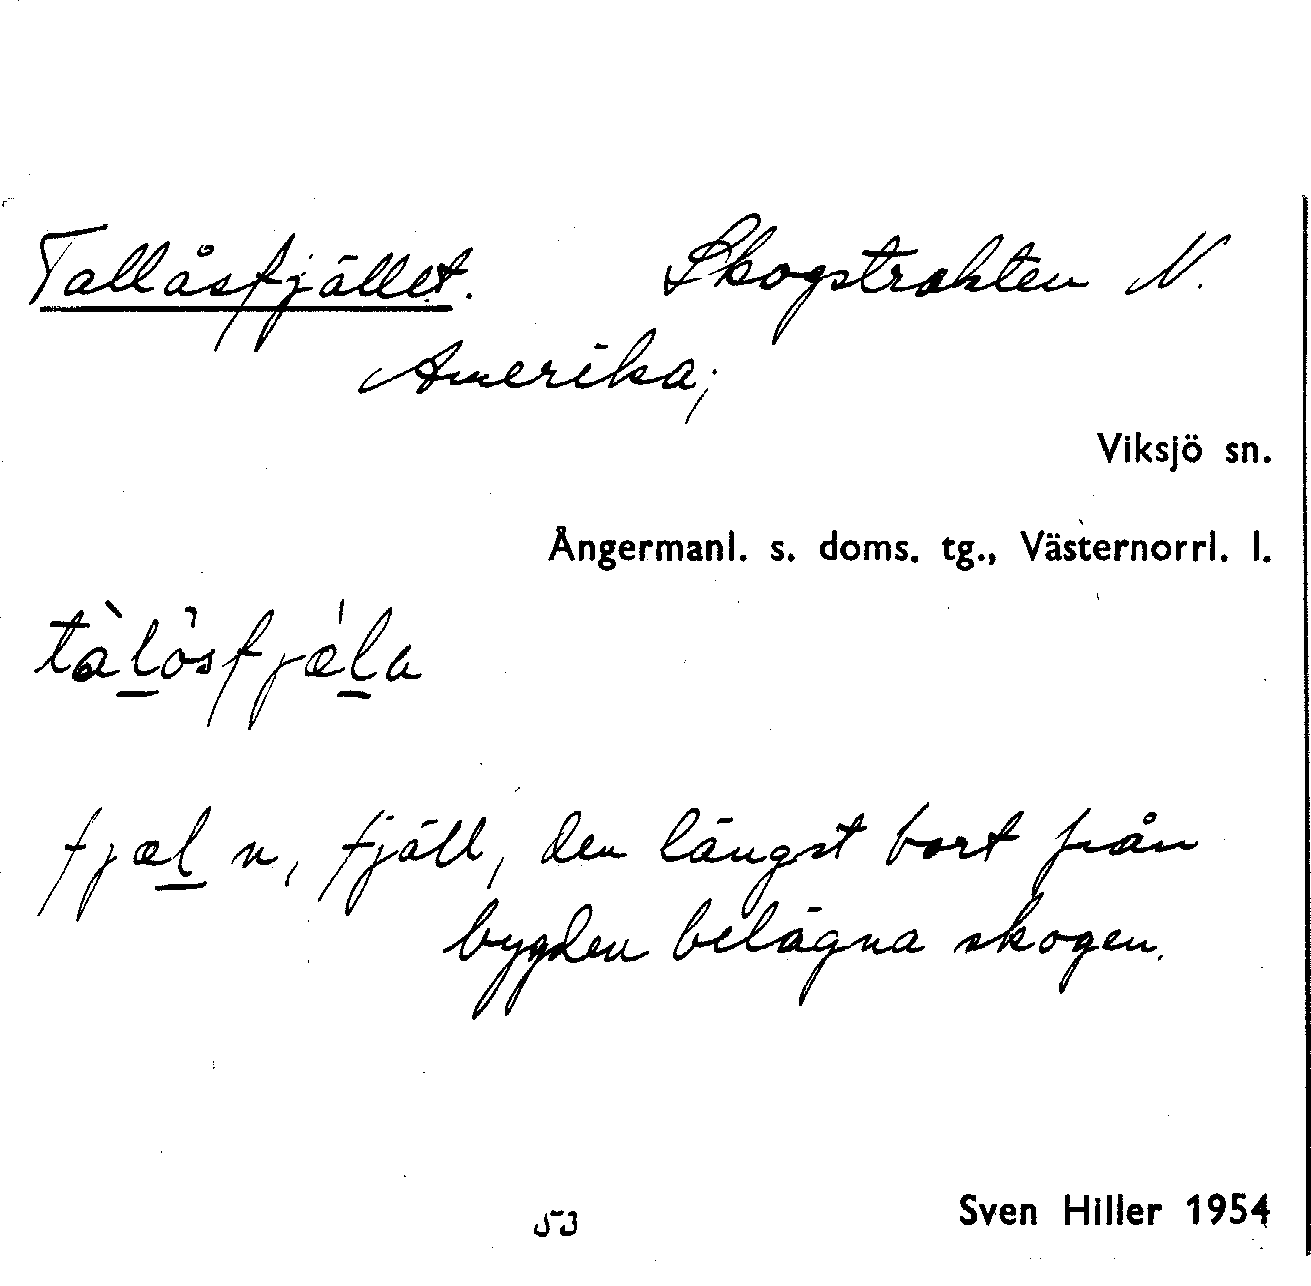 Tallåsfjället. Skogstrakten N.
Amerika;
Viksjö sn.
Ångermanl. s. doms. tg., Västernorrl. l.
tàlòsfjæ̀la
fjæl n, fjäll, den längst bort från
bygden belägna skogen.
53
Sven Hiller 1954